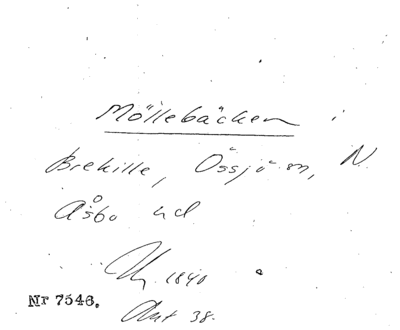 Möllebäcken i
Brekille, Össjö sn, N
Åsbo hd
1840
Nr 7546.
Akt 38.